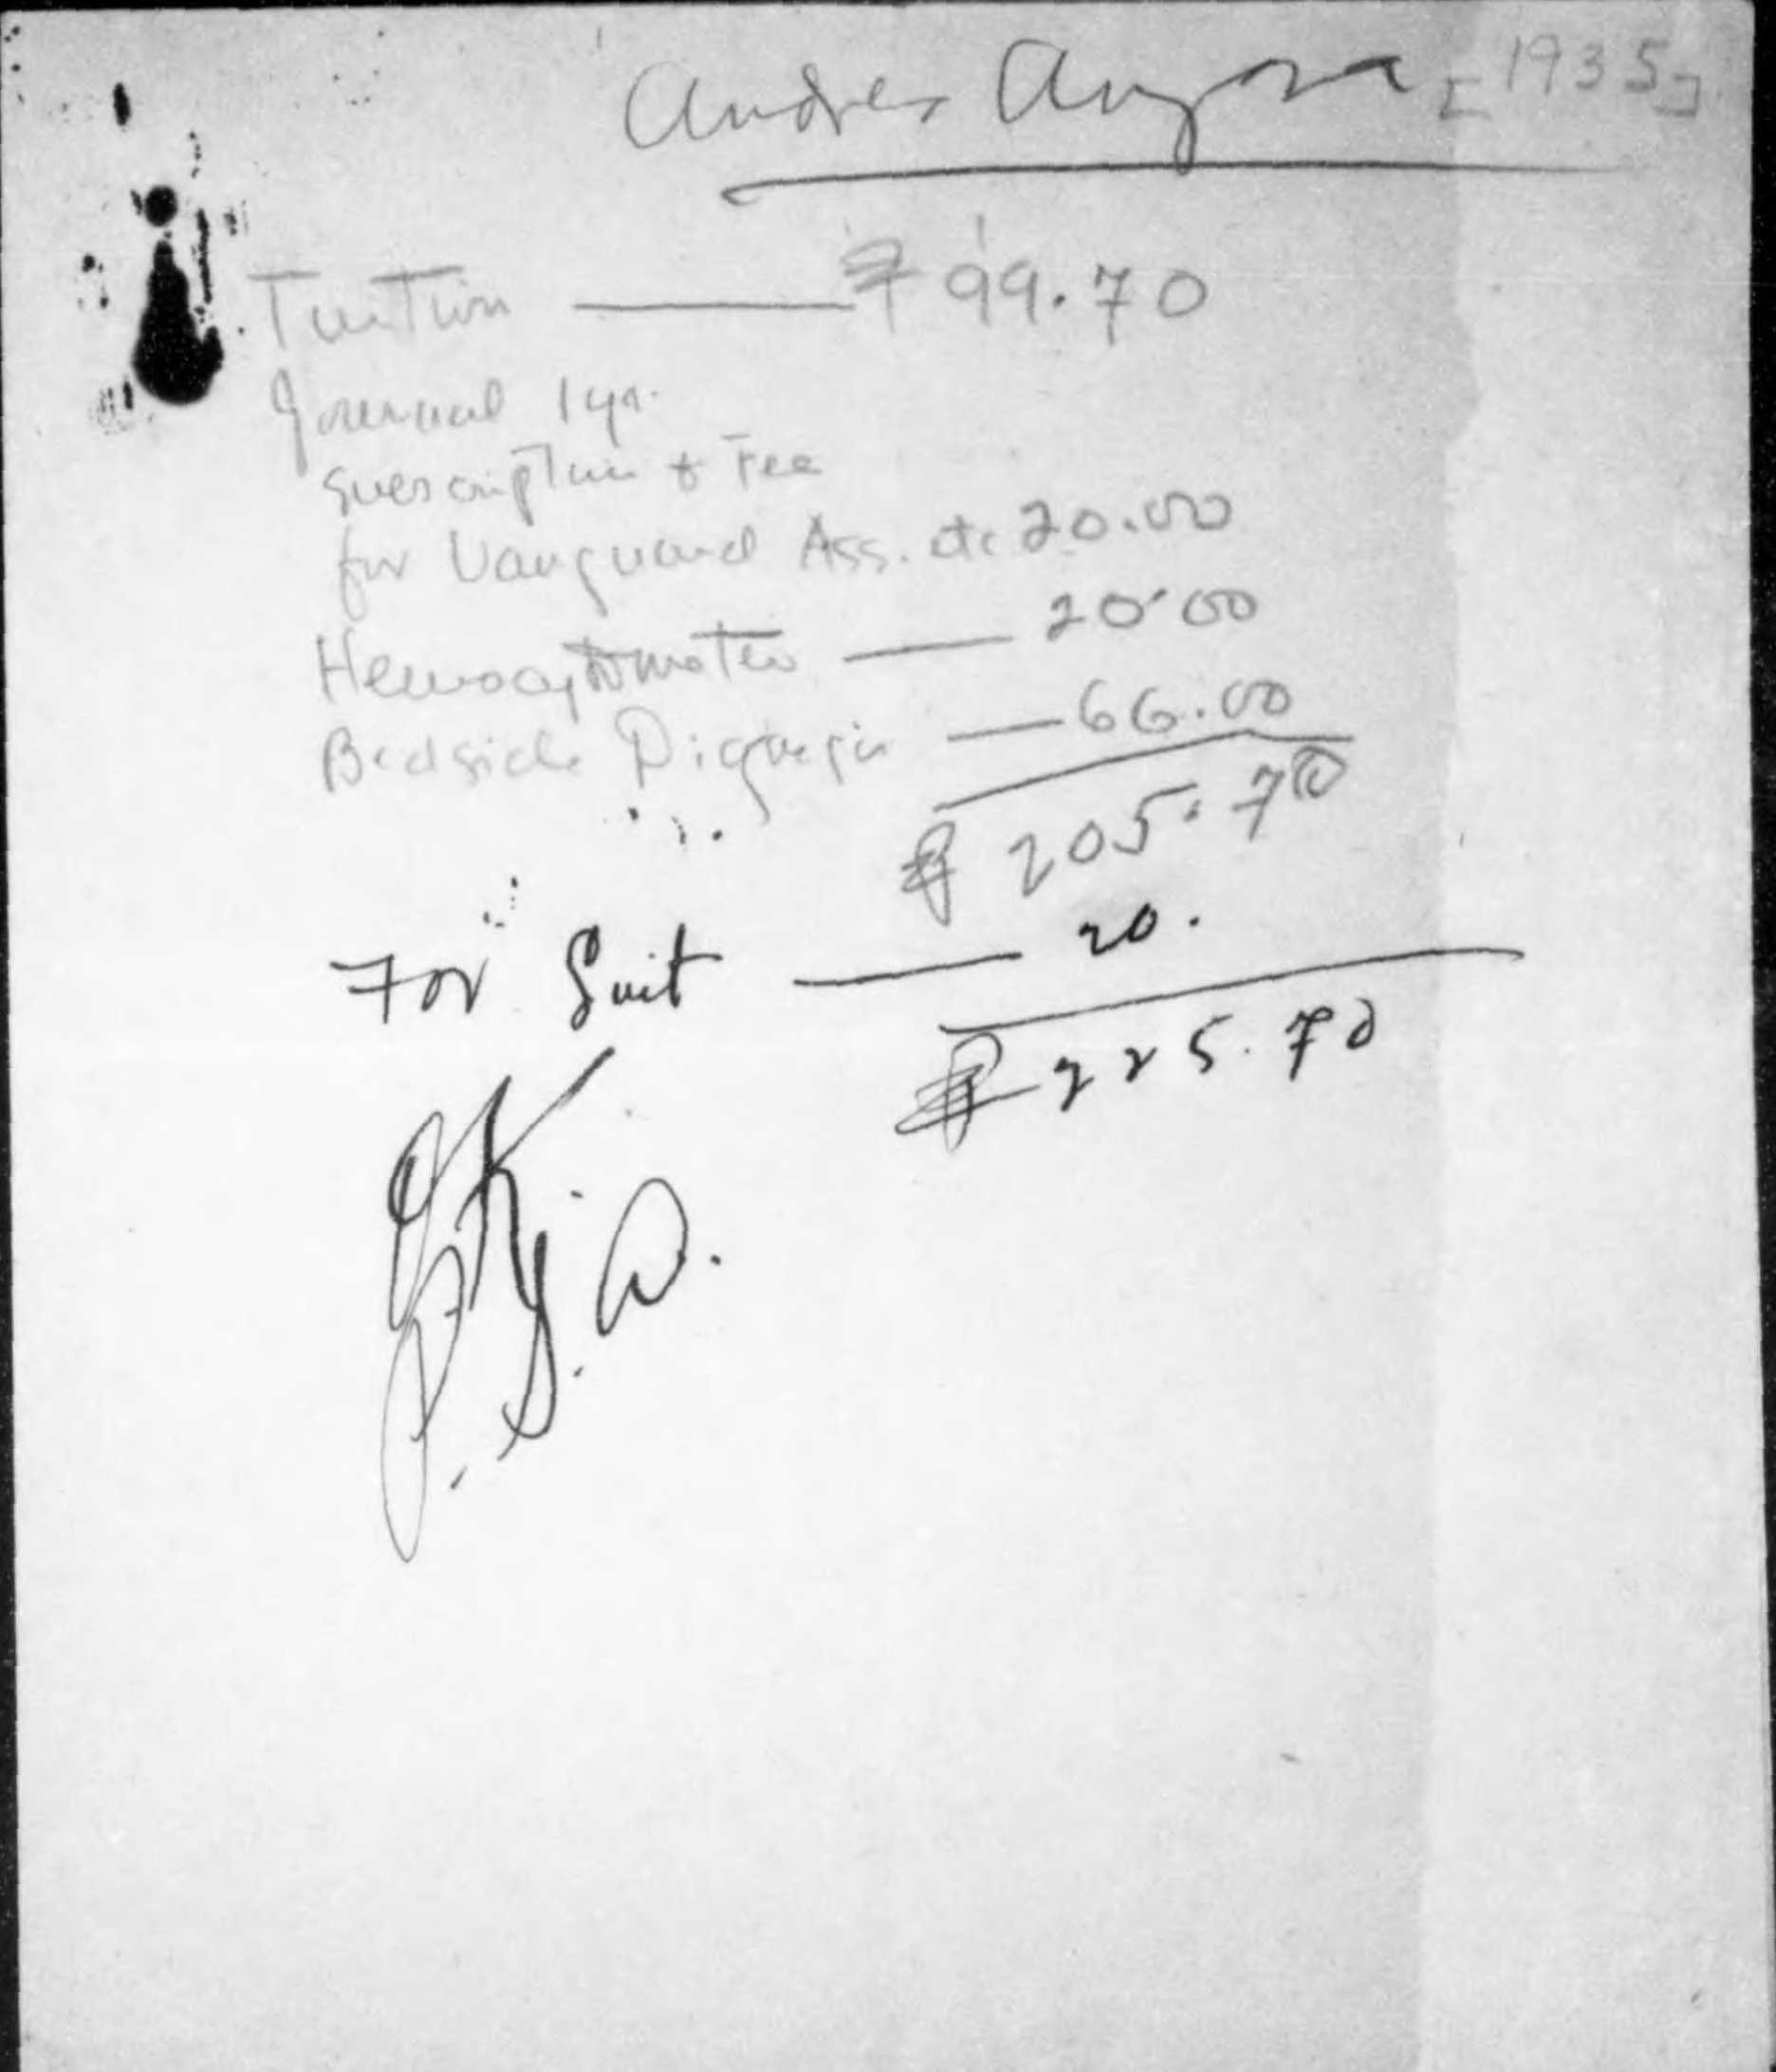 Andres Angara [1935]
Tuition — ₱ 99.70
Journal 1 yr.
suescription & Fee
for Vanguard Ass. etc 20.00
Hemocytometer — 20.00
Bedside Diagnosis — 66.00
₱ 205.70
For Suit — 20.
₱ 225.70